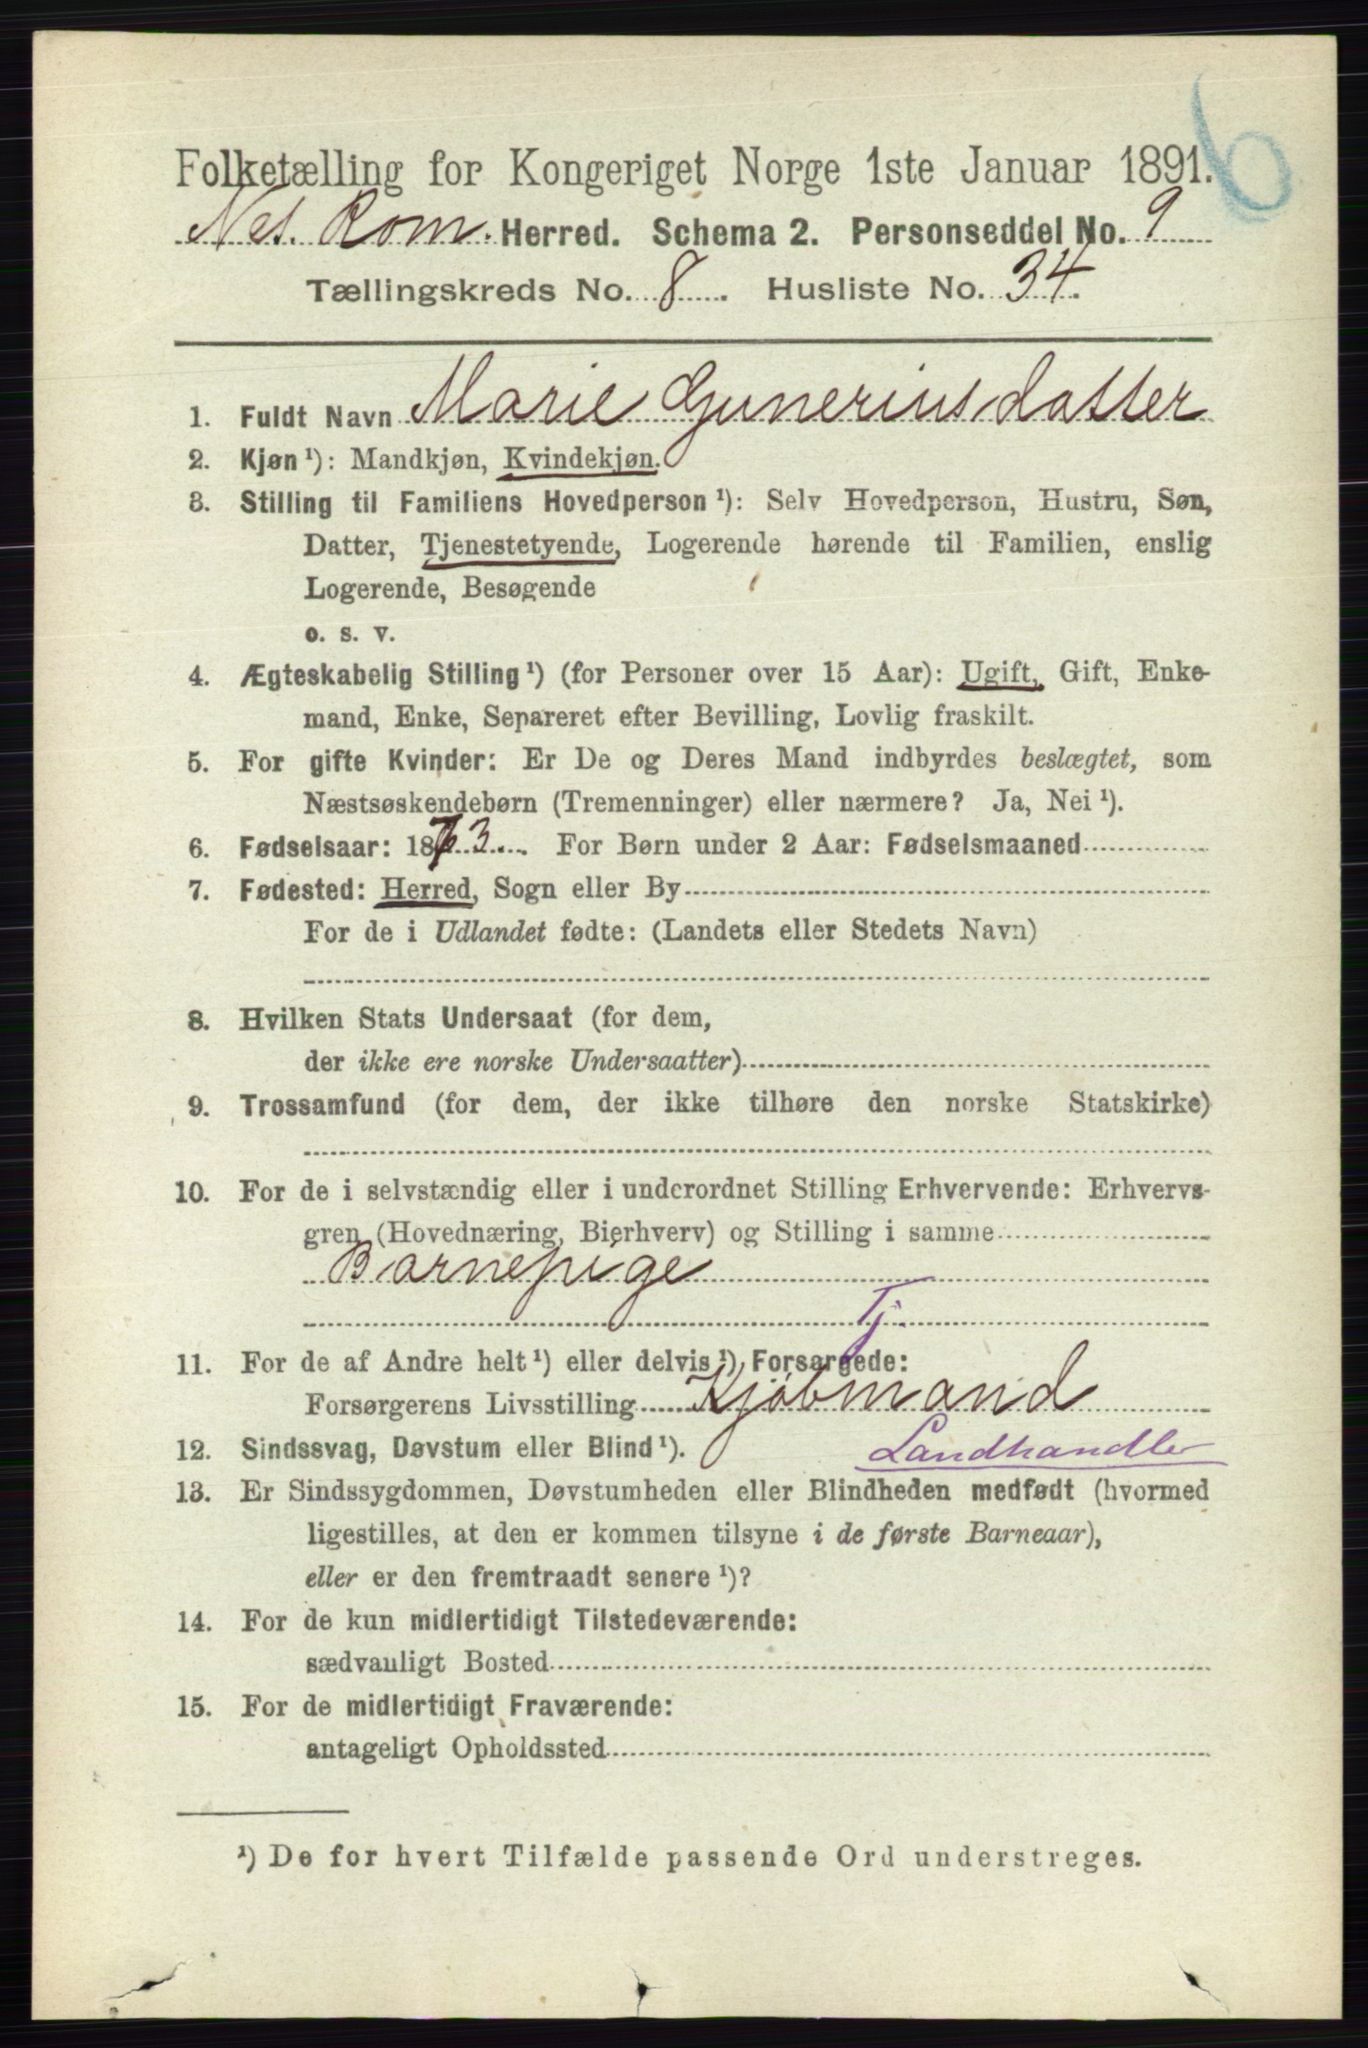 6
Folketælling for Kongeriget Norge 1ste Januar 1891.
Nes. Rom. Herred. Schema 2. Personseddel No. 9
Tællingskreds No. 8. Husliste No. 34.
1. Fuldt Navn Marie Guneriusdatter
2. Kjøn ¹): Mandkjøn, Kvindekjøn.
3. Stilling til Familiens Hovedperson ¹): Selv Hovedperson, Hustru, Søn,
Datter, Tjenestetyende, Logerende hørende til Familien, enslig
Logerende, Besøgende
o. s. v.
4. Ægteskabelig Stilling ¹) (for Personer over 15 Aar): Ugift, Gift, Enke-
mand, Enke, Separeret efter Bevilling, Lovlig fraskilt.
5. For gifte Kvinder: Er De og Deres Mand indbyrdes beslægtet, som
Næstsøskendebørn (Tremenninger) eller nærmere? Ja, Nei ¹).
6. Fødselsaar: 1873. For Børn under 2 Aar: Fødselsmaaned
7. Fødested: Herred, Sogn eller By
For de i Udlandet fødte: (Landets eller Stedets Navn)
8. Hvilken Stats Undersaat (for dem,
der ikke ere norske Undersaatter)
9. Trossamfund (for dem, der ikke tilhøre den norske Statskirke)
10. For de i selvstændig eller i underordnet Stilling Erhvervende: Erhvervs-
gren (Hovednæring, Bierhverv) og Stilling i samme
Barnepige
Tj.
11. For de af Andre helt ¹) eller delvis ¹) Forsørgede:
Forsørgerens Livsstilling Kjøbmand
12. Sindssvag, Døvstum eller Blind ¹). Landhandler
13. Er Sindssygdommen, Døvstumheden eller Blindheden medfødt (hvormed
ligestilles, at den er kommen tilsyne i de første Barneaar),
eller er den fremtraadt senere ¹)?
14. For de kun midlertidigt Tilstedeværende:
sædvanligt Bosted
15. For de midlertidigt Fraværende:
antageligt Opholdssted
¹) De for hvert Tilfælde passende Ord understreges.